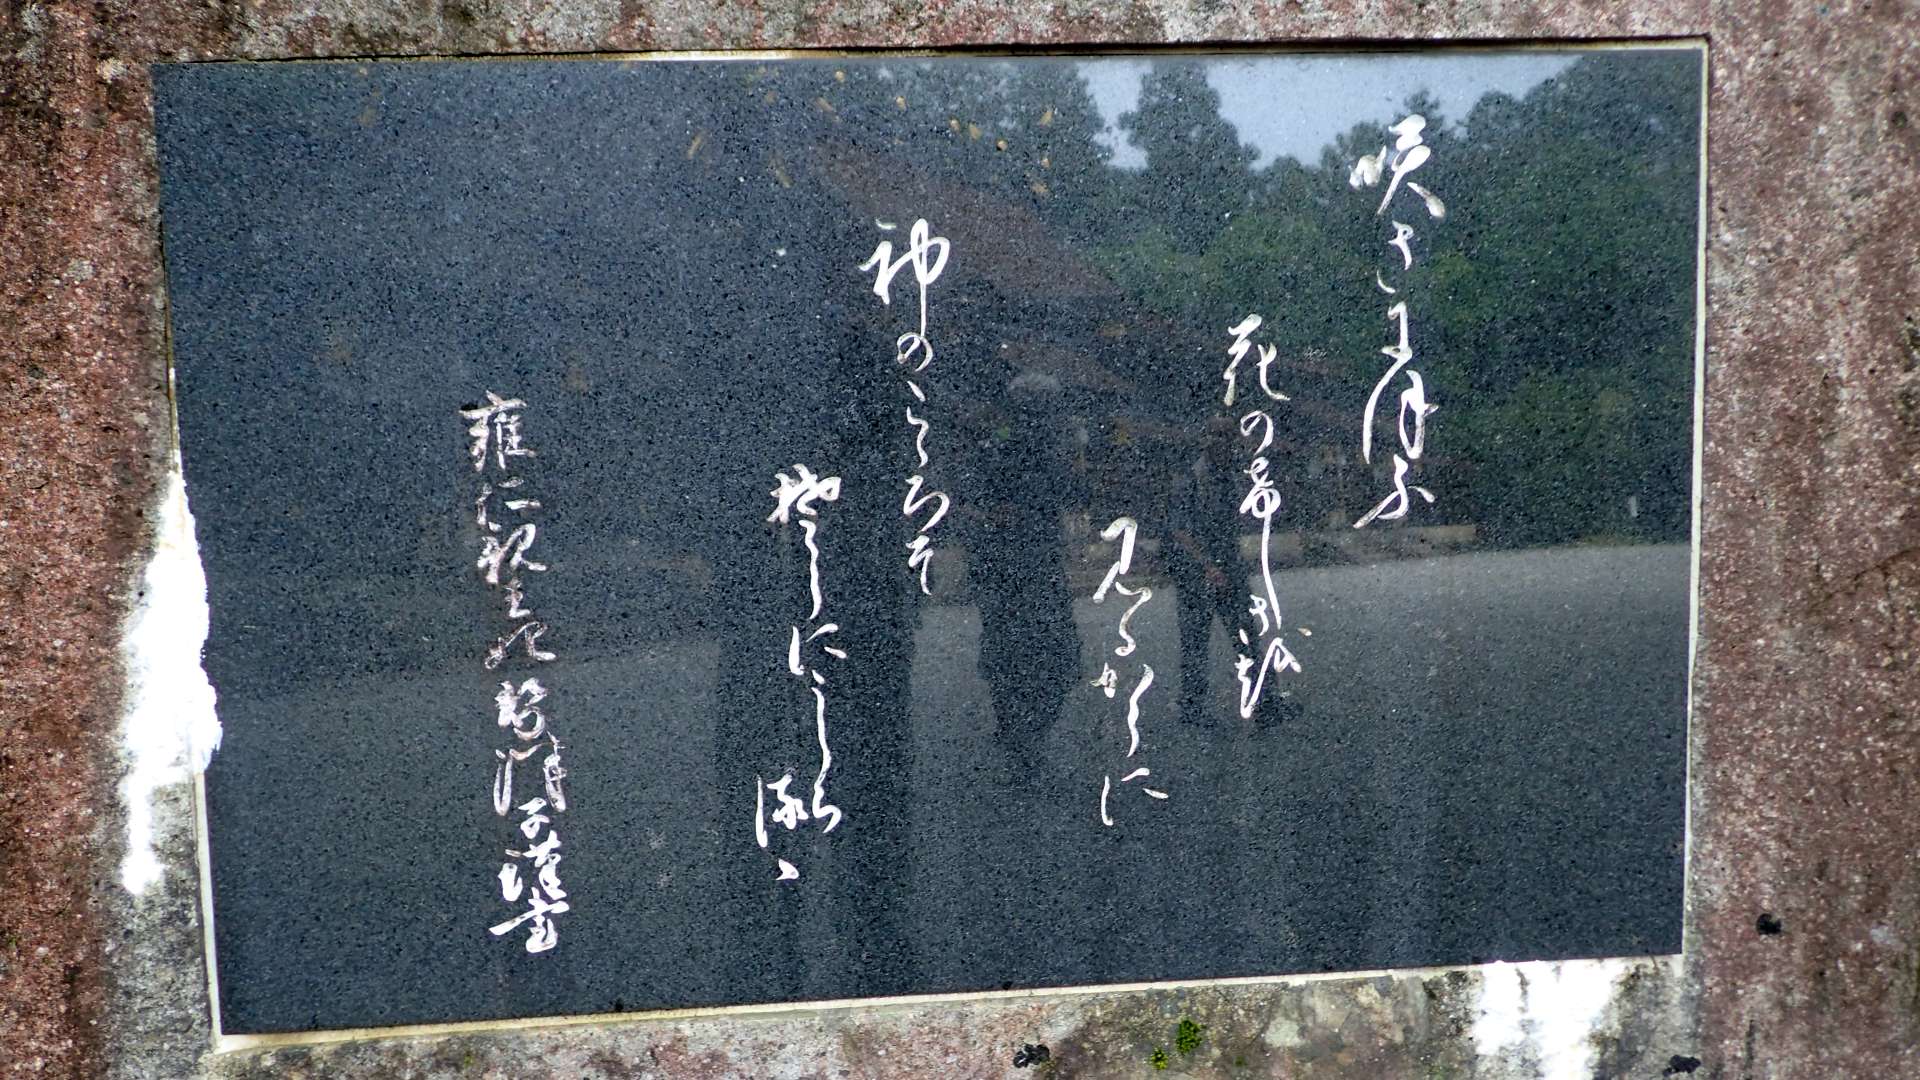 咲きにほふ
花の希しき越
見るからに
神のこころそ
楚らにしらるゝ
雍仁親王妃勢津子謹書